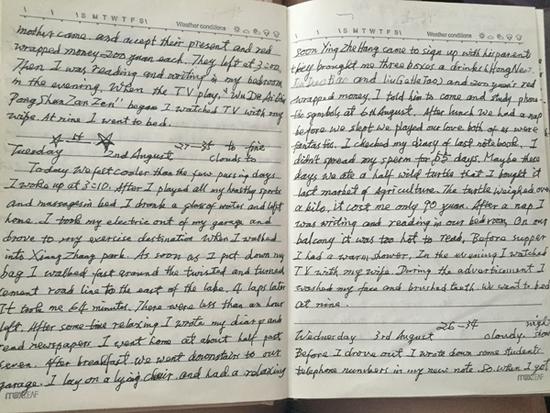 S M T W T F S
Weather conditions
mother came. and accept their present and red
wrapped money = 200 yuan each. They left at 3=20.
Then I was reading and writing in my bedroom
in the evening. When the TV play, "Wu De
Pang Shen Zan Zen" began I watched TV with my
wife. At nine I went to bed.
Tuesday 2nd August 27-35 to fine
clouds to
Today. We felt cooler than the few passing days.
I woke up at 3=10. After I played all my healthy sports
and massages in bed I drank a glass of water and left
home. I took my electric out of my garage and
drove to very exercise destination. When I walked
into Xiang Zhang park. As soon as I put down my
bag I walked fast around the twisted and turned
cement road line to the east of the lake, 4 laps later
It took me 64 minutes. There were less than an hour
left. After some time relaxing I wrote my diary and
read newspapers I went home at about half past
seven. After breakfast we went downstairs to our
garage. I lay on a lying chair and had a relaxing
LEAF
S M T W T F S
Weather conditions
soon Ying Zhe Hang came to sign up with his parent
they brought me three boxes a drinks (Hong New,
and Liu Ge Hetao) and 200 yuan's red
wrapped money. I told him to come and study phone
tic symbols at 6th August. After lunch we had a nap
before we slept we played our love both of us were
fantastic. I checked my diary of last notebook. I
didn't spread my sperm for 65 days. Maybe these
days we ate a half wild turtle that I bought it
last market of agriculture. The turtle weighed over
a kilo, it cost me only 90 yuan. After a nap I
was writing and reading in our bedroom, On our
balcony it was too hot to read. Before supper
I had a warm shower. In the evening I watched
TV with my wife. During the advertisement I
washed my face and brushed teeth. We went to bed
at nine.
Wednesday 3rd August 26-34 night
cloudy,
Before I drove out I wrote down some students'
telephone numbers in my new note. So when I got
LEAF